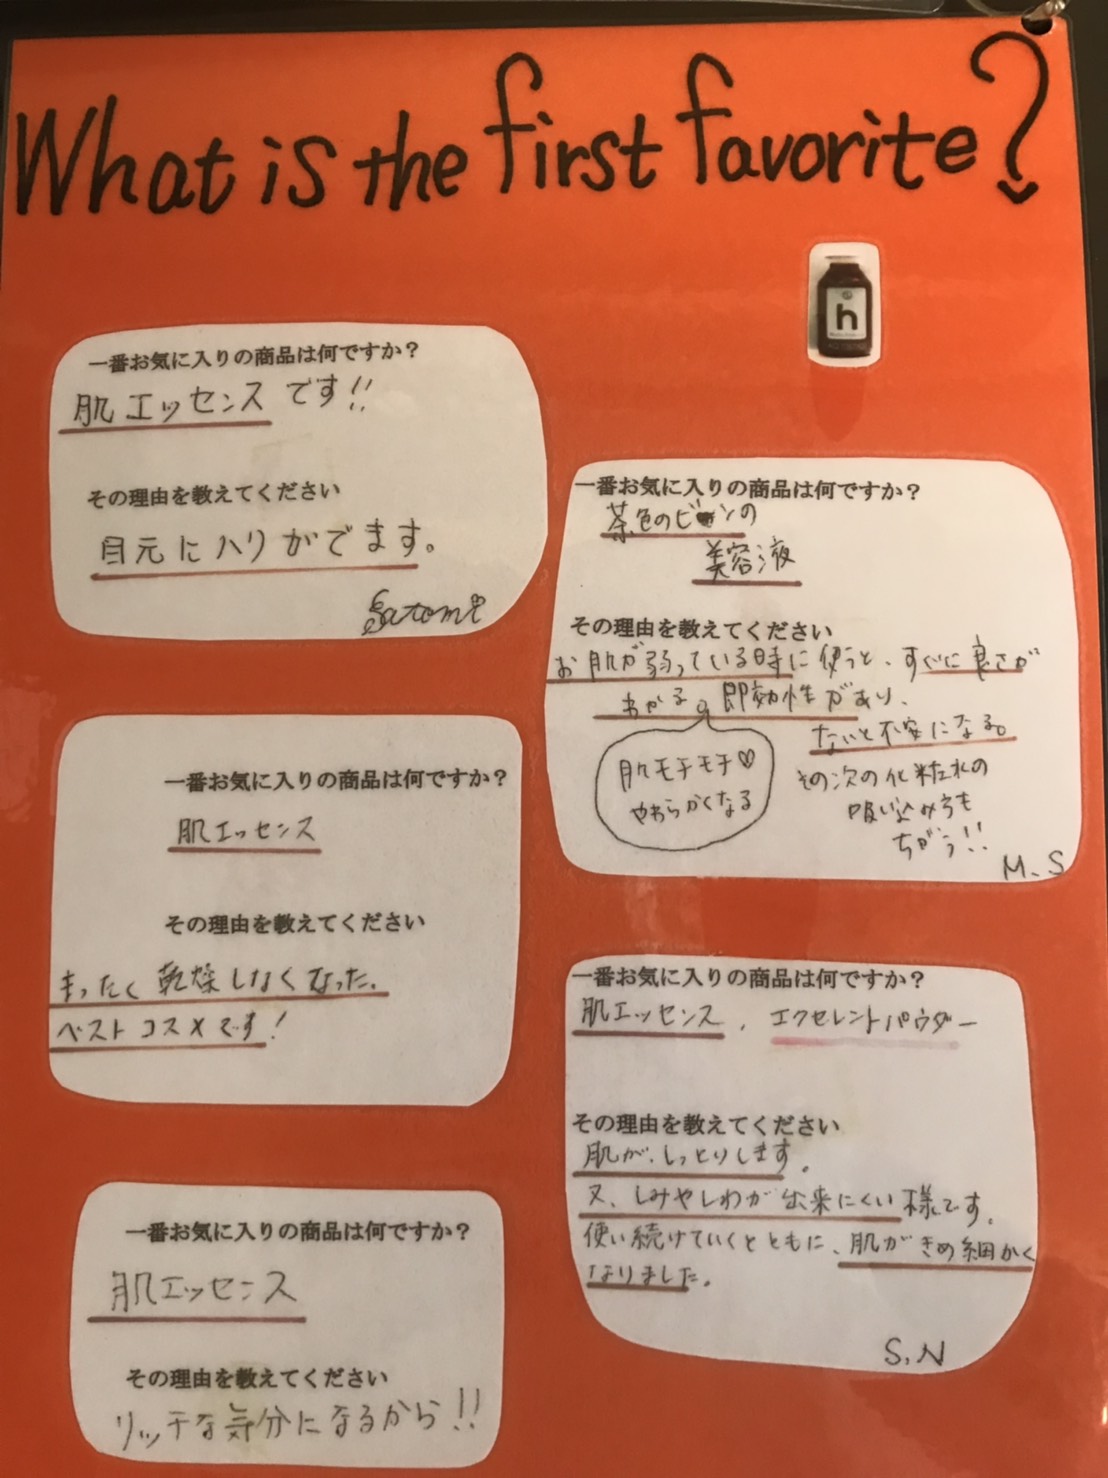 What is the first favorite?
h
一番お気に入りの商品は何ですか？
肌エッセンスです!!
その理由を教えてください
目元にハリがでます。
Satomi
一番お気に入りの商品は何ですか？
茶色のビンの
美容液
その理由を教えてください
お肌が弱っている時に使うと、すぐに良さが
わかる。即効性があり、
ないと不安になる。
肌モチモチ♡
やわらかくなる
その次の化粧水の
吸い込み方も
ちがう!!
M.S
一番お気に入りの商品は何ですか？
肌エッセンス
その理由を教えてください
まったく乾燥しなくなった。
ベストコスメです!
一番お気に入りの商品は何ですか？
肌エッセンス、エクセレントパウダー
その理由を教えてください
肌が、しっとりします。
又、しみやしわが出来にくい様です。
使い続けていくとともに、肌がきめ細かく
なりました。
S.N
一番お気に入りの商品は何ですか？
肌エッセンス
その理由を教えてください
リッチな気分になるから!!